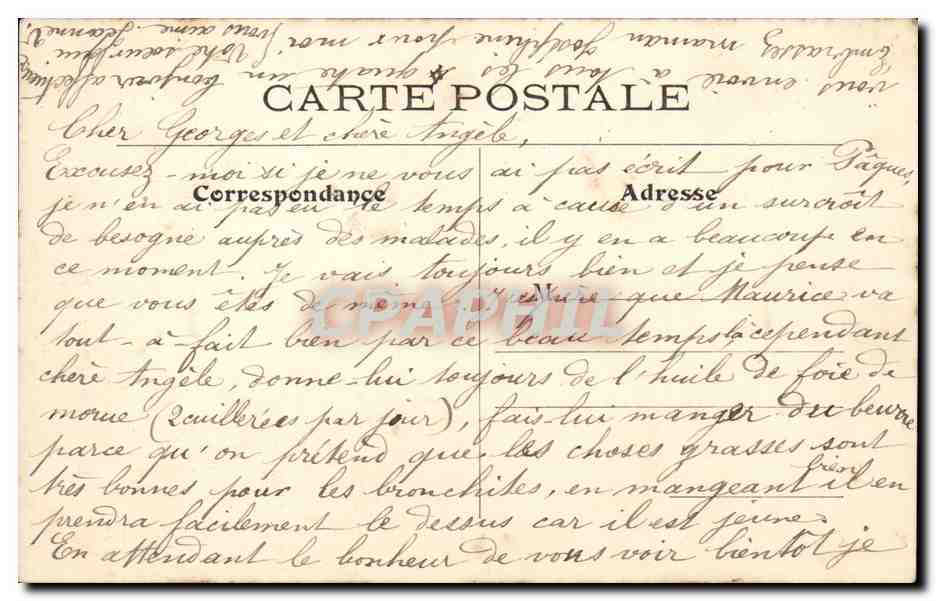 CARTE POSTALE
Correspondance
Adresse
M
Cher Georges et chère Angèle,
Excusez-moi si je ne vous ai pas écrit pour Pâques,
je n'en ai pas eu le temps à cause d'un surcroît
de besogne auprès des malades, il y en a beaucoup en
ce moment. Je vais toujours bien et je pense
que vous êtes de même. que Maurice va
tout-à-fait bien par ce beau temps là cependant
chère Angèle, donne-lui toujours de l'huile de foie de
morue (2 cuillerées par jour), fais-lui manger du beurre
parce qu'on prétend que les choses grasses sont
très bonnes pour les bronchites, en mangeant bien il en
prendra facilement le dessus car il est jeune.
En attendant le bonheur de vous voir bientôt je
vous envoie à tous les quatre un bonjour affectueux
Embrassez maman Joséphine pour moi. Votre sœur qui
vous aime. Jeanne
CPAPHIL